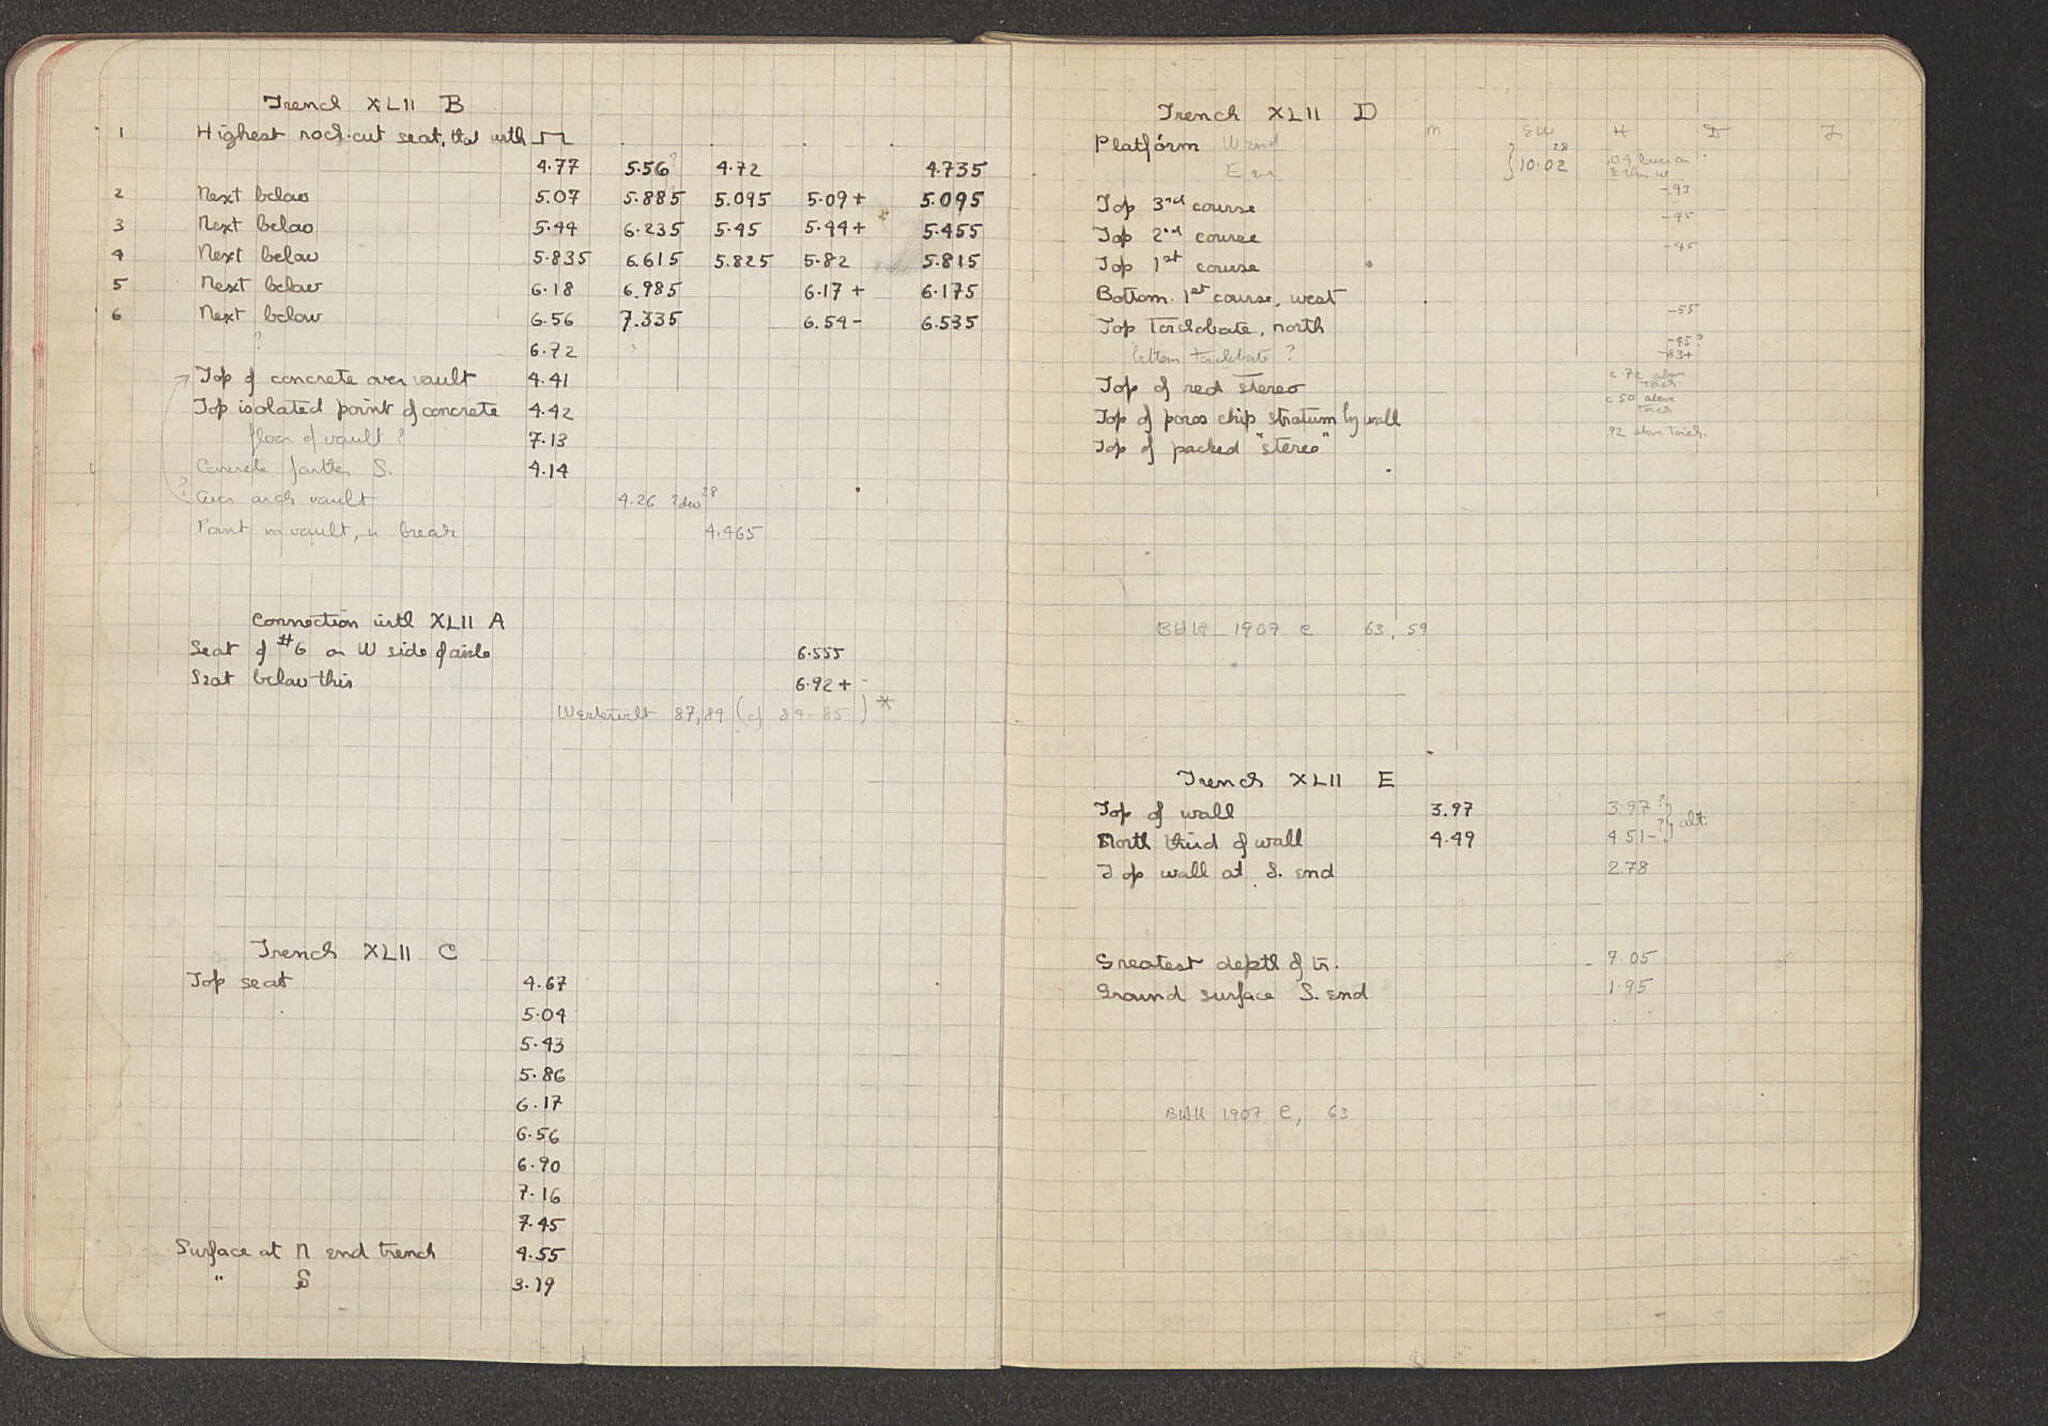 Trench XLII B
1 Highest rock-cut seat, that with
4.77 5.56? 4.72 4.735
2 Next below 5.07 5.885 5.095 5.09+ 5.095
3 Next below 5.44 6.235 5.45 5.44+ 5.455
4 Next below 5.835 6.615 5.825 5.82 5.815
5 Next below 6.18 6.985 6.17+ 6.175
6 Next below 6.56 7.335 6.54- 6.535
? 6.72
Top of concrete over vault 4.41
Top isolated point of concrete 4.42
floor of vault? 7.13
Concrete farther S. 4.14
? Over arch vault 4.26 28
Point in vault, in break 4.465
Connection with XLII A
Seat of #6 on W side of aisle 6.555
Seat below this 6.92+
87, 89 (cf 84-85) *
Trench XLII C
Top seat 4.67
5.04
5.43
5.86
6.17
6.56
6.90
7.16
7.45
Surface at N end trench 4.55
" S 3.19
Trench XLII D
M SW H D J
Platform W end } 10.02 28
E end
Top 3rd course -.93
Top 2nd course -.45
Top 1st course -.45
Bottom 1st course, west
Top Toichobate, north -.55
bottom toichobate? -.45? -.83+
Top of red stereo c .72 above Toich
Top of poros chip stratum by wall c .50 above Toich
Top of packed "stereo" .92 above Toich.
BHH 1907 c 63, 59
Trench XLII E
Top of wall 3.97 3.97? } alt.
North third of wall 4.49 4.51-? }
Top wall at S. end 2.78
Greatest depth of tr. 7.05
Ground surface S. end 1.95
BHH 1907 c, 63